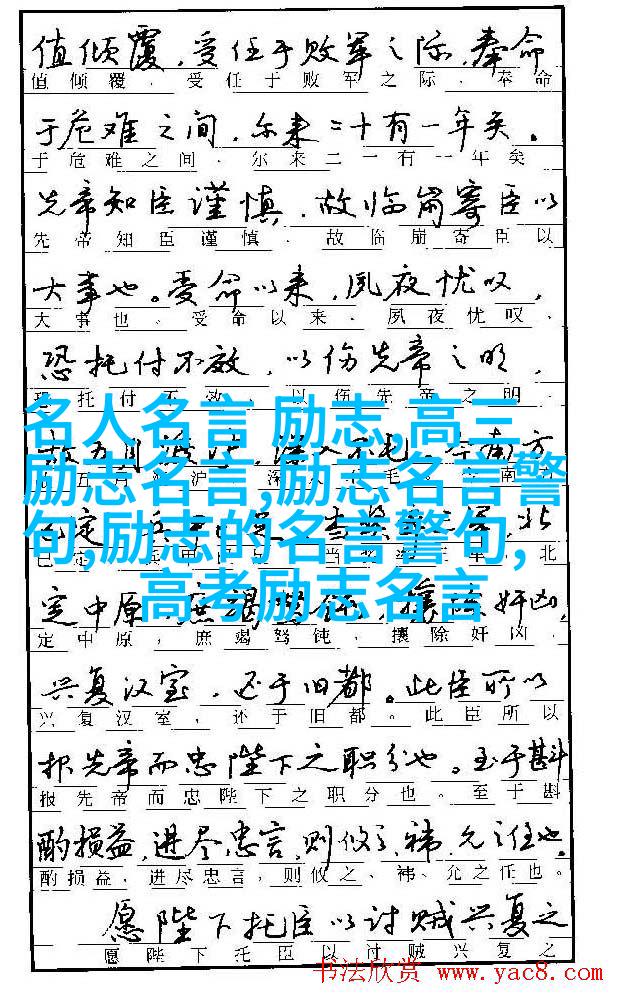 值倾覆，受任于败军之际，奉命
值倾覆，受任于败军之际，奉命
于危难之间，尔来二十有一年矣。
于危难之间，尔来二一有一年矣
先帝知臣谨慎，故临崩寄臣以
先帝知臣谨慎，故临崩寄臣以
大事也。受命以来，夙夜忧叹，
大事也。受命以来，夙夜忧叹，
恐托付不效，以伤先帝之明，
托付不效，以伤先帝之明，
名人名言 励志,高三
励志名言,励志名言警
句,励志的名言警句,
高考励志名言
故五月渡泸，深入不毛。今南方
五 泸，深 毛。 南
定，兵 足，当奖 三军，北
已定 当 军，北
定中原，庶竭驽钝，攘除奸凶，
定中原，庶竭驽钝，攘除奸凶，
兴复汉室，还于旧都。此臣所以
兴复汉室，还于旧都。此臣所以
报先帝而忠陛下之职分也。至于斟
报先帝而忠陛下之职分也。至于斟
酌损益，进尽忠言，则攸之、祎、允之任也。
酌损益，进尽忠言，则攸之、祎、允之任也。
愿陛下托臣以讨贼兴复之
愿陛下托臣以讨贼兴复之
书法欣赏 www.yac8.com